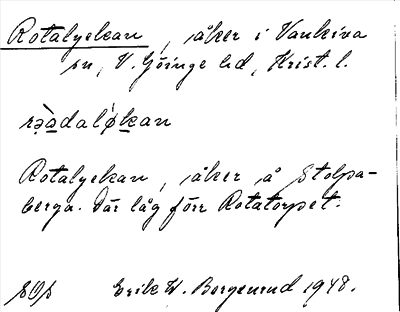 Rotalyckan, åker i Vankiva
sn, V. Göinge hd, Krist. l.
rə̀adalǿkan
Rotalyckan, åker å Stolpa-
berga. Där låg förr Rotatorpet.
Erik W. Borgenrud 1948.